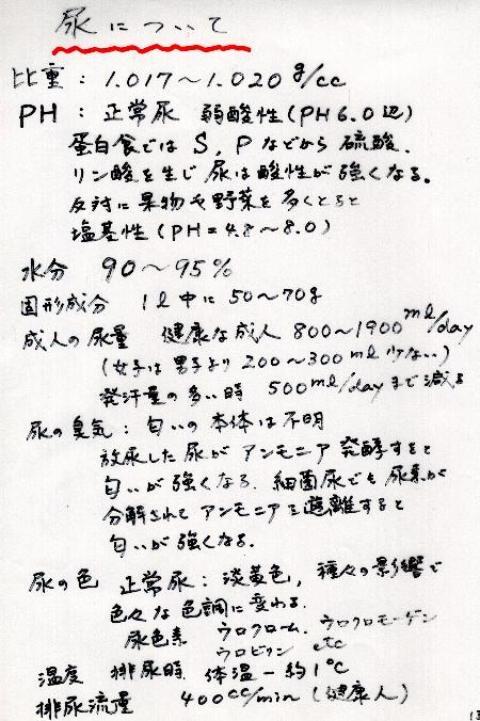 尿について
比重：1.017〜1.020 g/cc
PH：正常尿 弱酸性(PH 6.0 辺)
蛋白食では S, P などから 硫酸.
リン酸を生じ 尿は酸性が強くなる。
反対に果物や野菜を多くとると
塩基性 (PH = 4.8〜8.0)
水分 90〜95%
固形成分 1l 中に 50〜70g
成人の尿量 健康な成人 800〜1900 ml/day
(女子は男子より 200〜300 ml 少ない)
発汗量の多い時 500 ml/day まで減る
尿の臭気：匂いの本体は不明
放尿した尿がアンモニア発酵すると
匂いが強くなる. 細菌尿でも尿素が
分解されてアンモニアを遊離すると
匂いが強くなる.
尿の色 正常尿：淡黄色, 種々の影響で
色々な色調に変わる.
尿色素 ウロクローム. ウロクロモーゲン
ウロビリン etc
温度 排尿時 体温 − 約1℃
排尿流量 400cc/min (健康人)